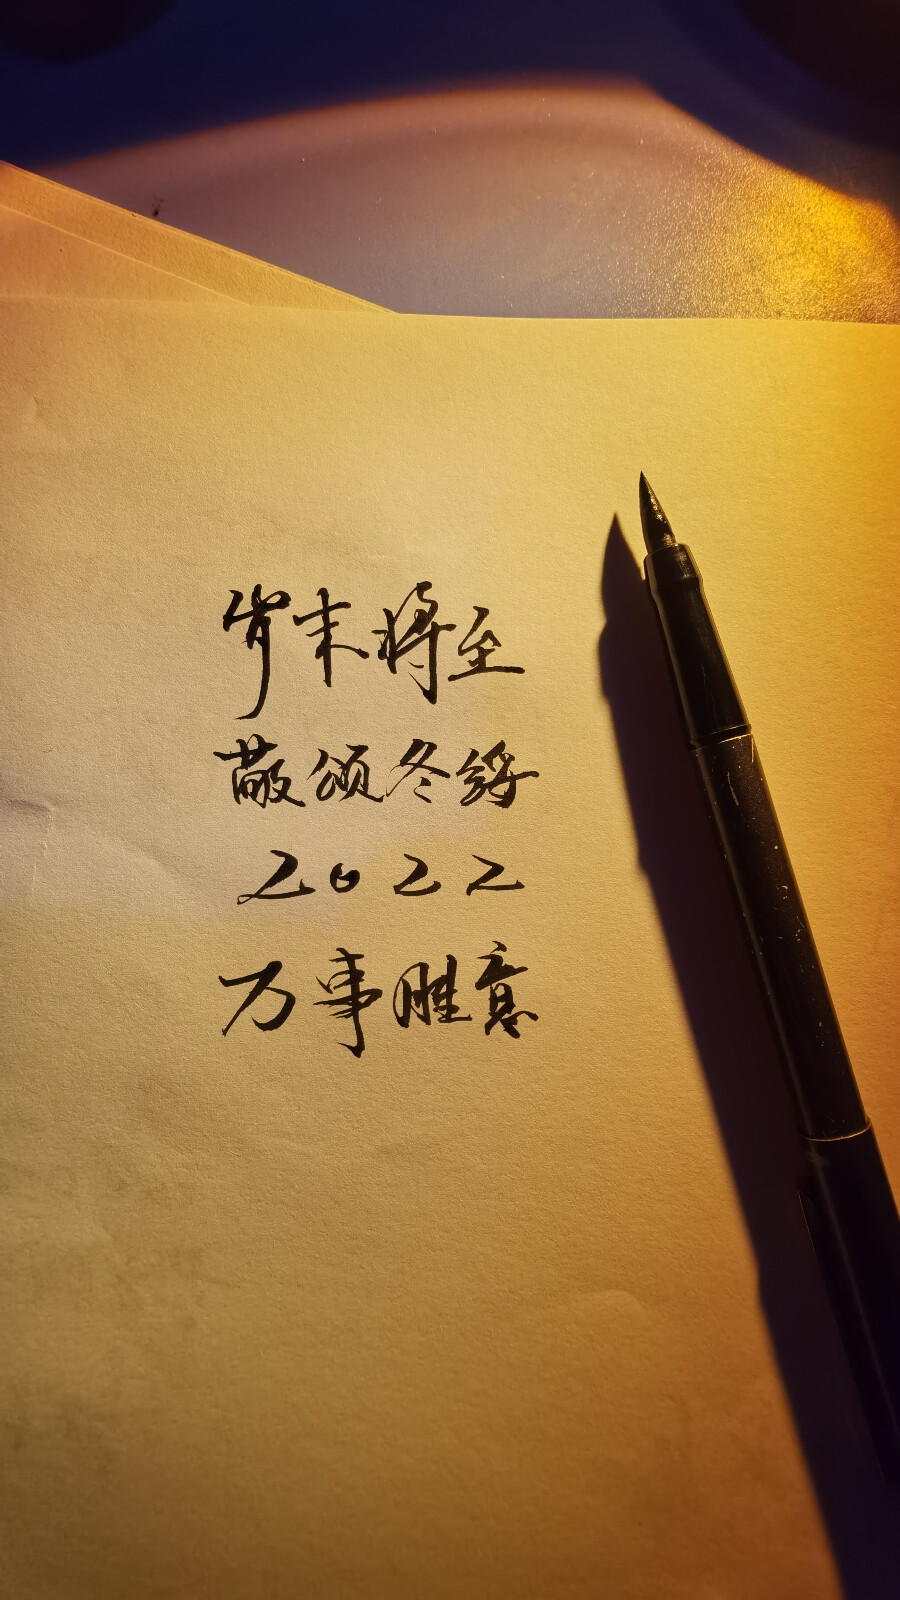 岁末将至
敬颂冬绥
2022
万事胜意